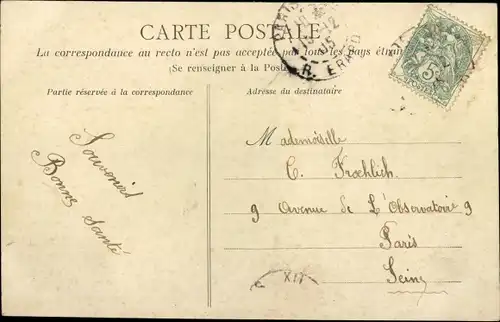 CARTE POSTALE
La correspondance au recto n'est pas acceptée par tous les pays étran
(Se renseigner à la Poste
R. ERARD
5
Partie réservée à la correspondance
Adresse du destinataire
Souvenirs
Bonne Santé
Mademoiselle
C. Froehlich.
9 Avenue de L'Observatoire 9
Paris
Seine
XII